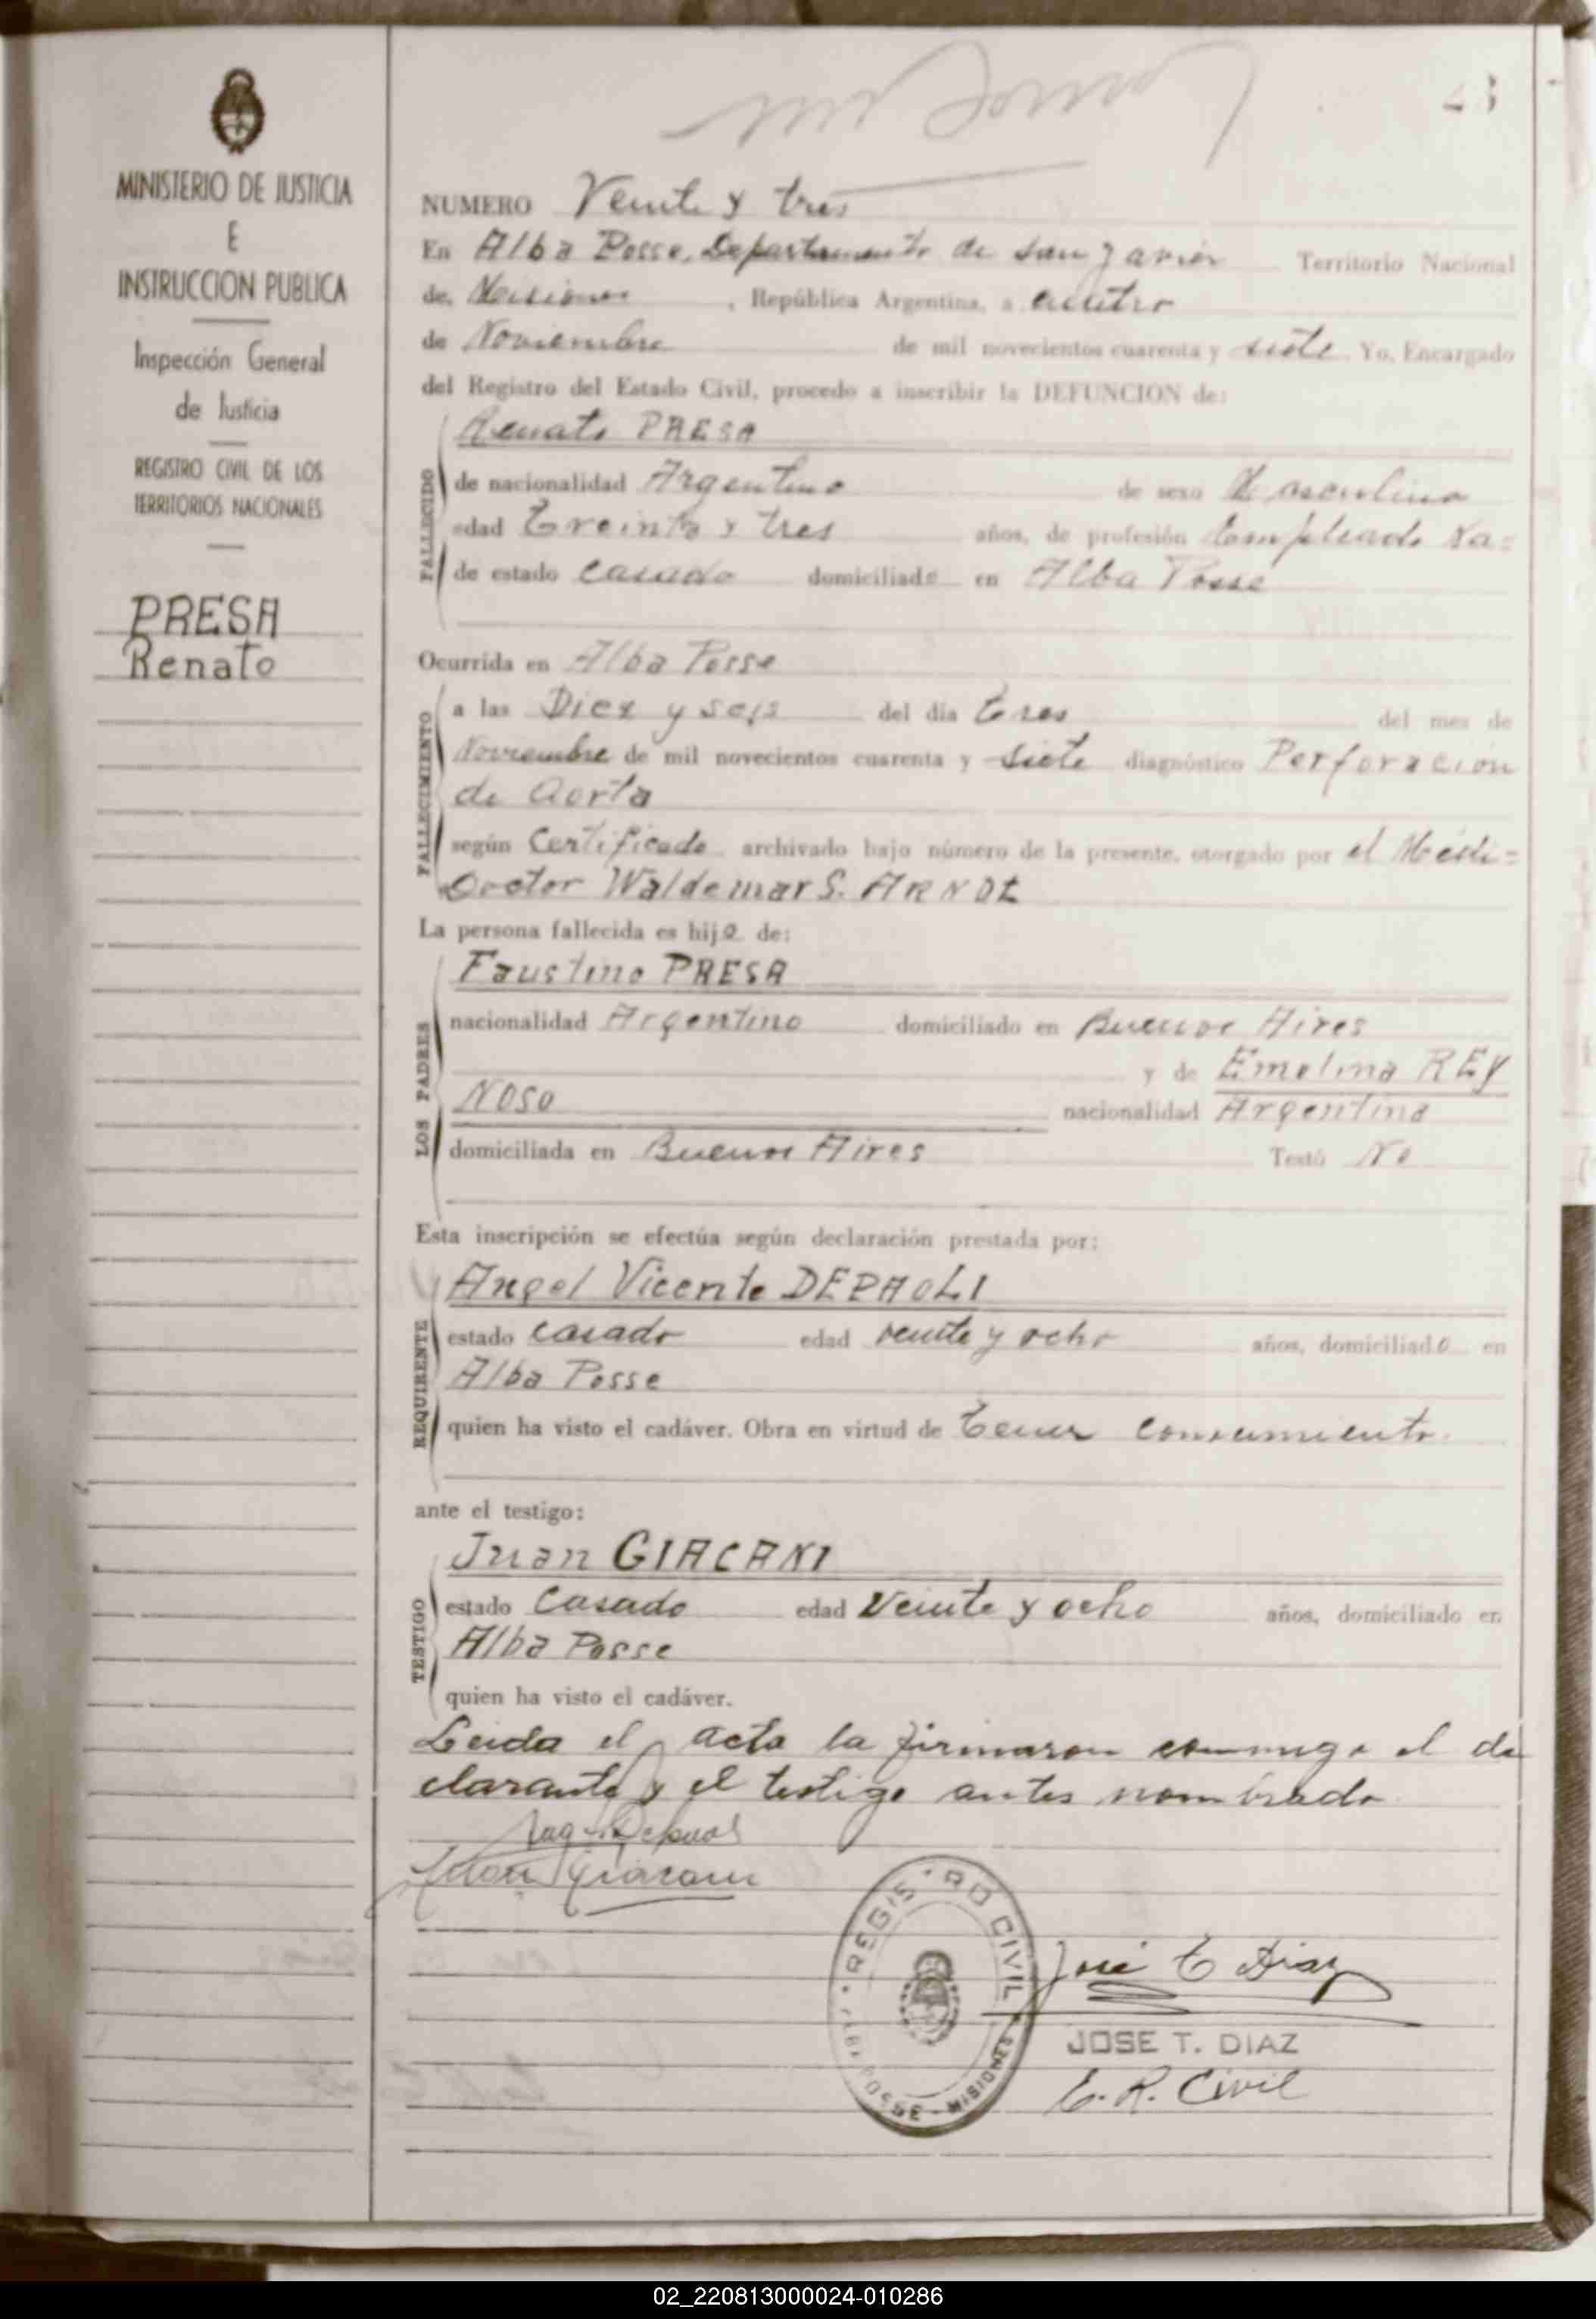 23
MINISTERIO DE JUSTICIA
E
INSTRUCCION PUBLICA
Inspección General
de Justicia
REGISTRO CIVIL DE LOS
TERRITORIOS NACIONALES
PRESA
Renato
NUMERO Veinte y tres
En Alba Posse, Departamento de San Javier Territorio Nacional
de Misiones, República Argentina, a cuatro
de Noviembre de mil novecientos cuarenta y siete Yo, Encargado
del Registro del Estado Civil, procedo a inscribir la DEFUNCION de:
Renato PRESA
FALLECIDO
de nacionalidad Argentino de sexo Masculino
edad Treinta y tres años, de profesión Empleado Na=
de estado casado domiciliado en Alba Posse
Ocurrida en Alba Posse
FALLECIMIENTO
a las Diez y seis del día tres del mes de
Noviembre de mil novecientos cuarenta y siete diagnóstico Perforación
de Aorta
según Certificado archivado bajo número de la presente, otorgado por el Médi=
Doctor Waldemar S. ARNDT
La persona fallecida es hijo de:
Faustino PRESA
LOS PADRES
nacionalidad Argentino domiciliado en Buenos Aires
y de Emelina REY
NOSO nacionalidad Argentina
domiciliada en Buenos Aires Testó No
Esta inscripción se efectúa según declaración prestada por:
Angel Vicente DEPAOLI
REQUIRENTE
estado casado edad veinte y ocho años, domiciliado en
Alba Posse
quien ha visto el cadáver. Obra en virtud de tener conocimiento.
ante el testigo:
Juan GIACANI
TESTIGO
estado Casado edad Veinte y ocho años, domiciliado en
Alba Posse
quien ha visto el cadáver.
Leida el acta la firmaron conmigo el de
clarante y el testigo antes nombrado.
Juan Giacani
REGISTRO CIVIL
ALBA POSSE - MISIONES
José T Diaz
JOSE T. DIAZ
E. R. Civil
02_220813000024-010286